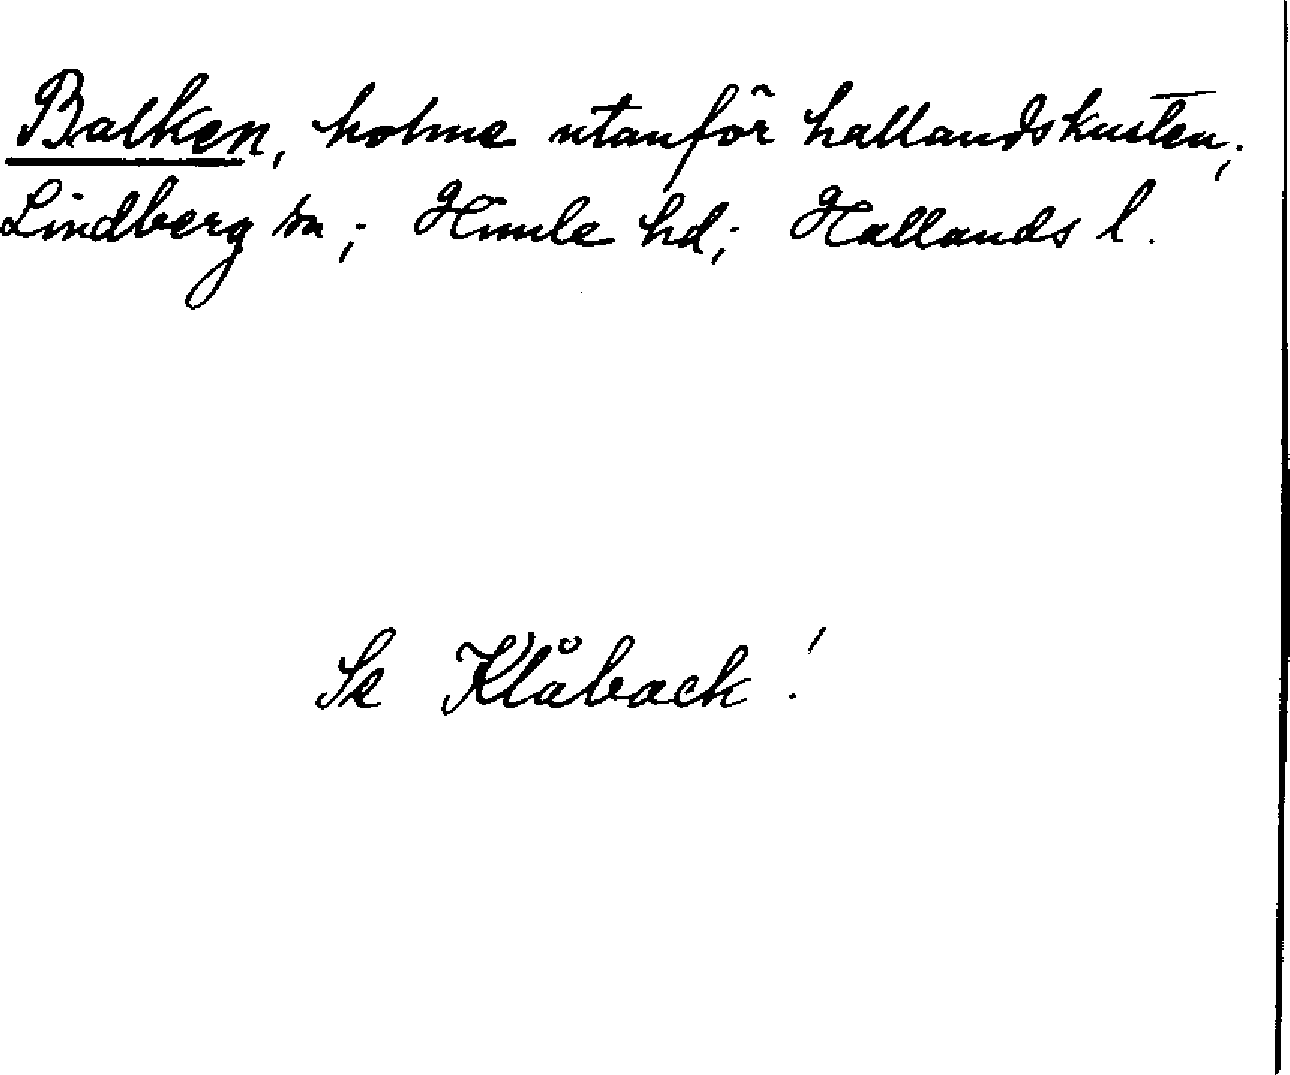 Balken, holme utanför hallandskusten;
Lindberg sn; Himle hd; Hallands l.
Se Klåback!